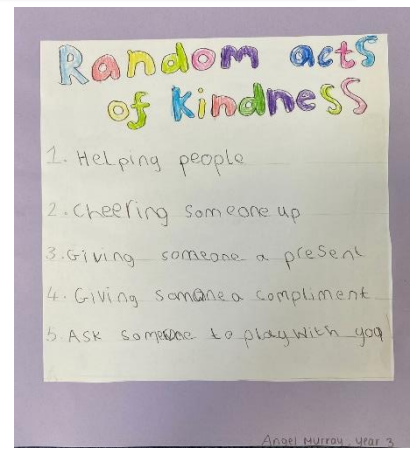 Random acts
of Kindness
1. Helping people
2. Cheering someone up
3. Giving someone a present
4. Giving somone a compliment
5. Ask someone to play with you
Angel Murray, year 3